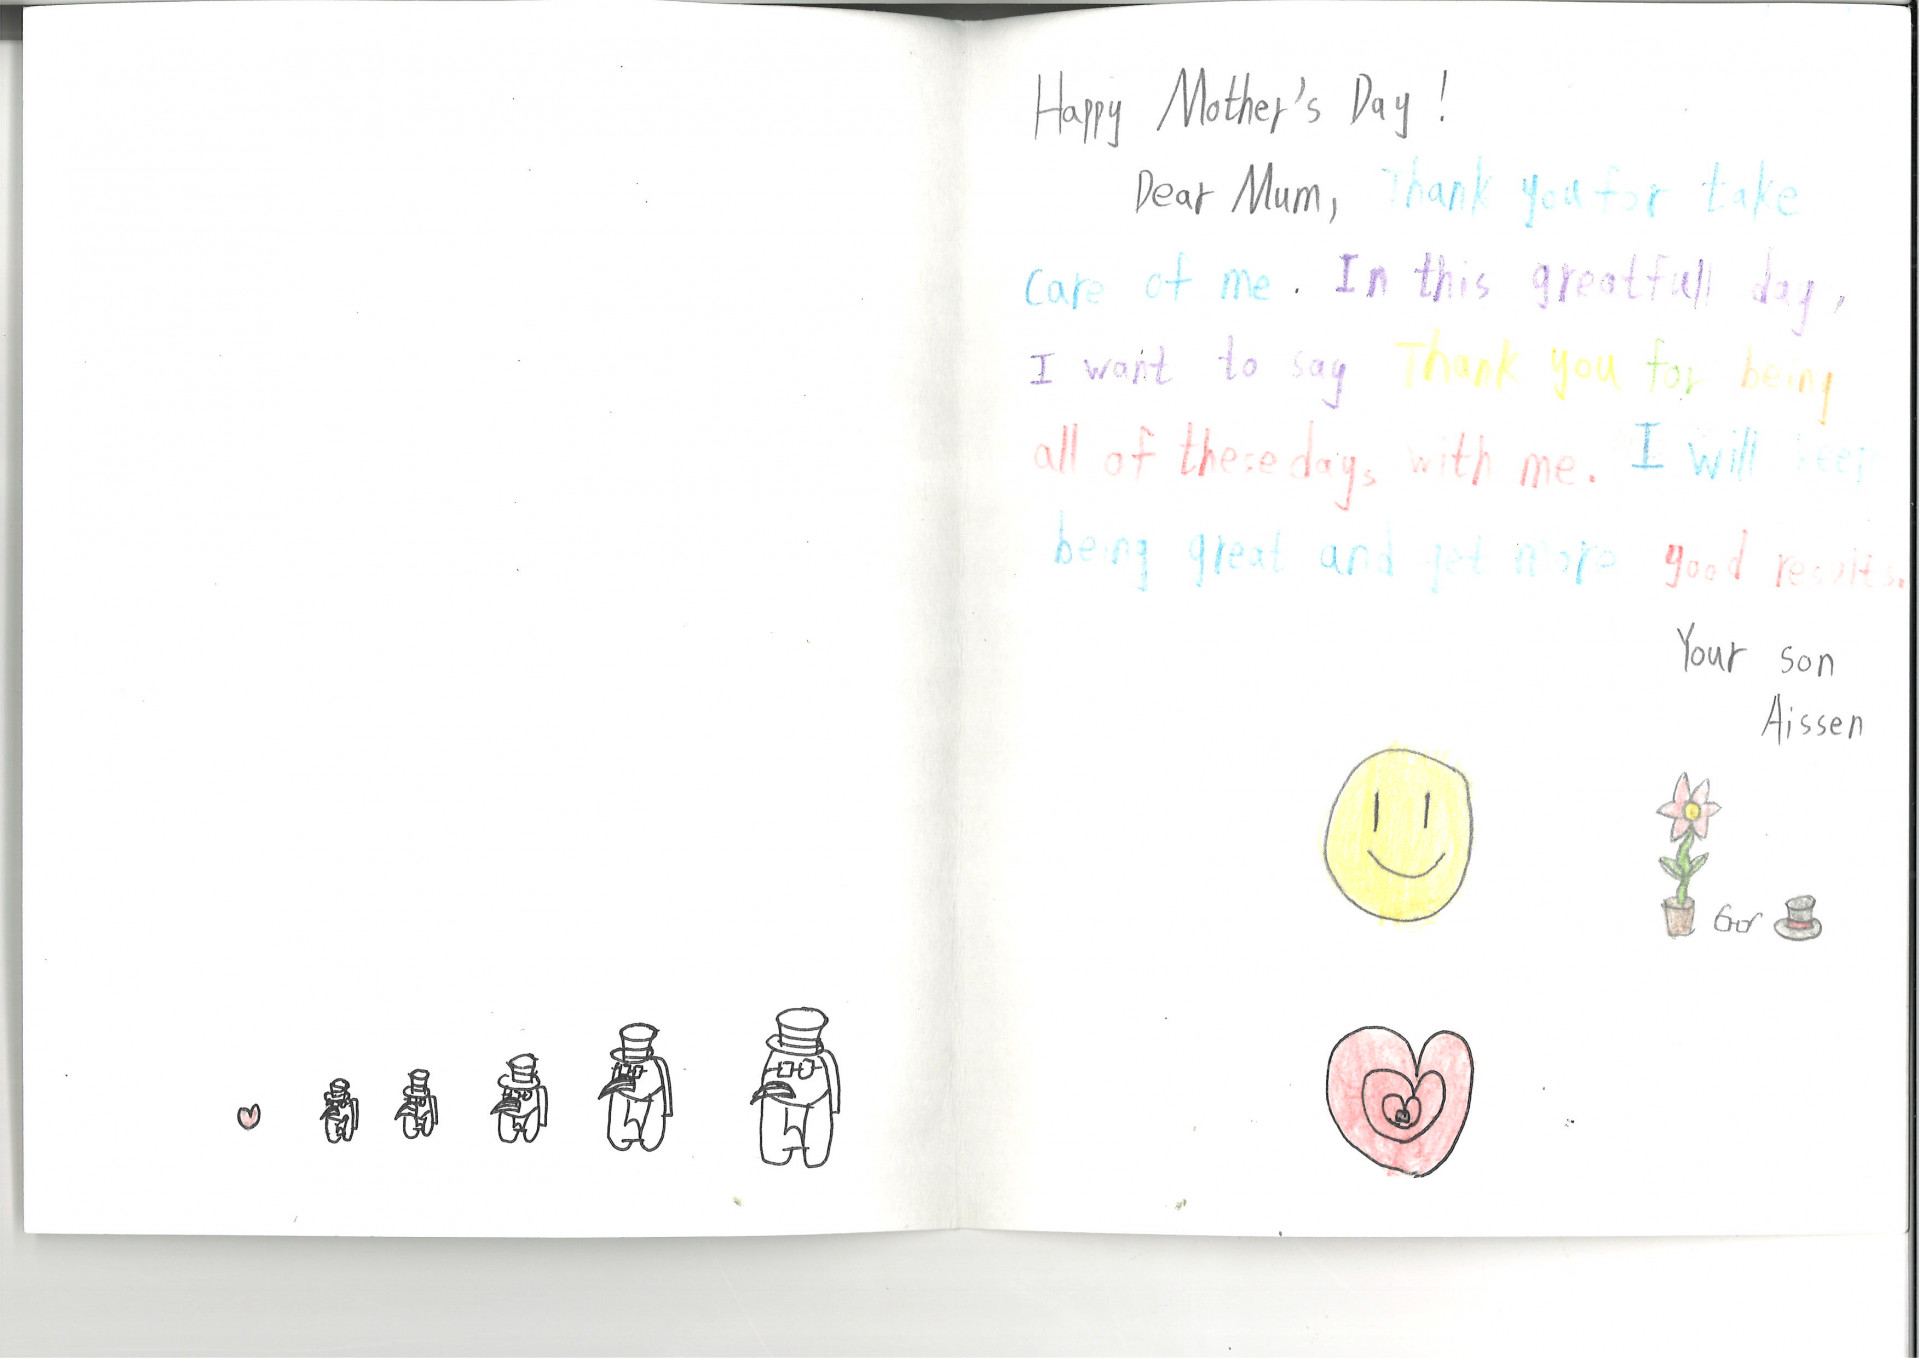 Happy Mother's Day!
Dear Mum, Thank you for take
care of me. In this greatfull day,
I want to say Thank you for being
all of these days with me. I will keep
being great and get more good results.
Your son
Aissen